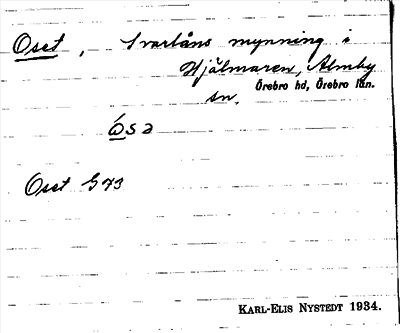 Oset, Svartåns mynning i
Hjälmaren, Almby
sn. Örebro hd, Örebro län.
ò̱sə
Oset G 73
KARL-ELIS NYSTEDT 1934.